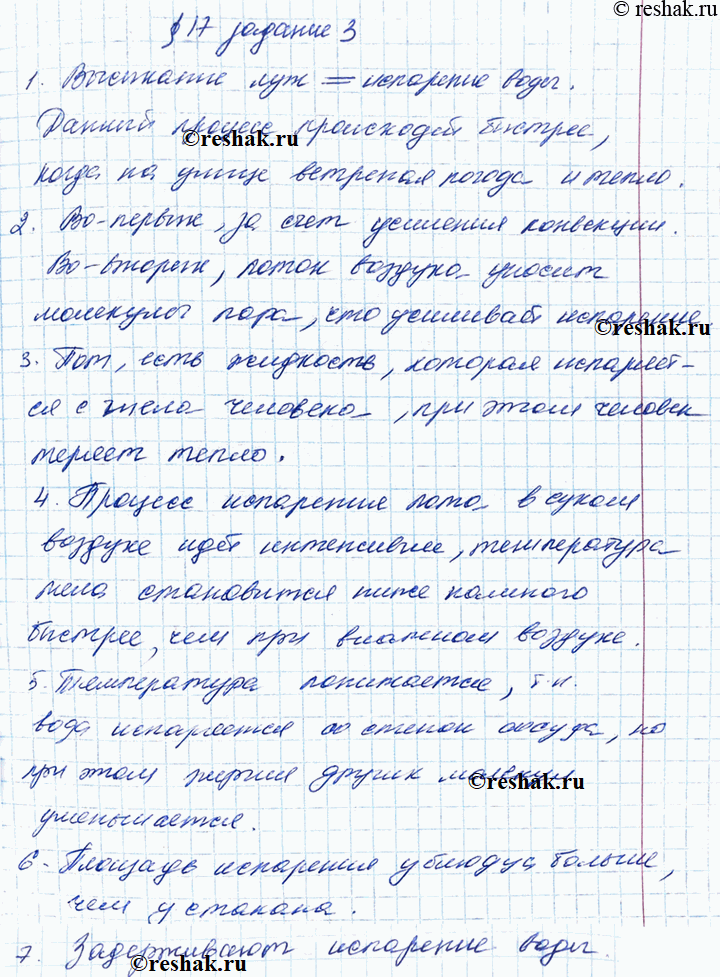 © reshak.ru
§ 17 задание 3
1. Высыхание луж = испарение воды.
Данный процесс происходит быстрее,
©reshak.ru
когда на улице ветреная погода и тепло.
2. Во-первых, за счет усиления конвекции.
Во-вторых, поток воздуха уносит
молекулы пара, что усиливает испарение
©reshak.ru
3. Пот, есть жидкость, которая испаряет-
ся с тела человека, при этом человек
теряет тепло.
4. Процесс испарения пота в сухом
воздухе идёт интенсивнее, температура
тела становится ниже намного
быстрее, чем при влажном воздухе.
5. Температура понижается, т.к.
вода испаряется со стенок сосуда, но
при этом энергия других молекул
©reshak.ru
уменьшается.
6- Площадь испарения у блюдца больше,
чем у стакана.
7. Задерживают испарение воды.
©reshak.ru